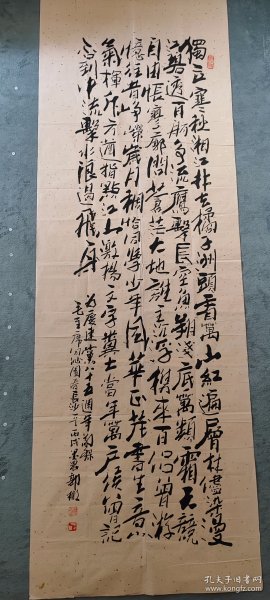 獨立寒秋湘江北去橘子洲頭看萬山紅遍層林盡染漫
江碧透百舸爭流鷹擊長空魚翔淺底萬類霜天競
自由悵寥廓問蒼茫大地誰主沉浮携來百侣曾游
憶往昔崢嶸歲月稠恰同學少年風華正茂書生意
氣揮斥方遒指點江山激揚文字糞土當年萬户侯曾記
否到中流擊水浪遏飛舟
為慶建黨八十五週年敬錄
毛主席沁園春長沙
孔夫子旧书网
www.kongfz.com